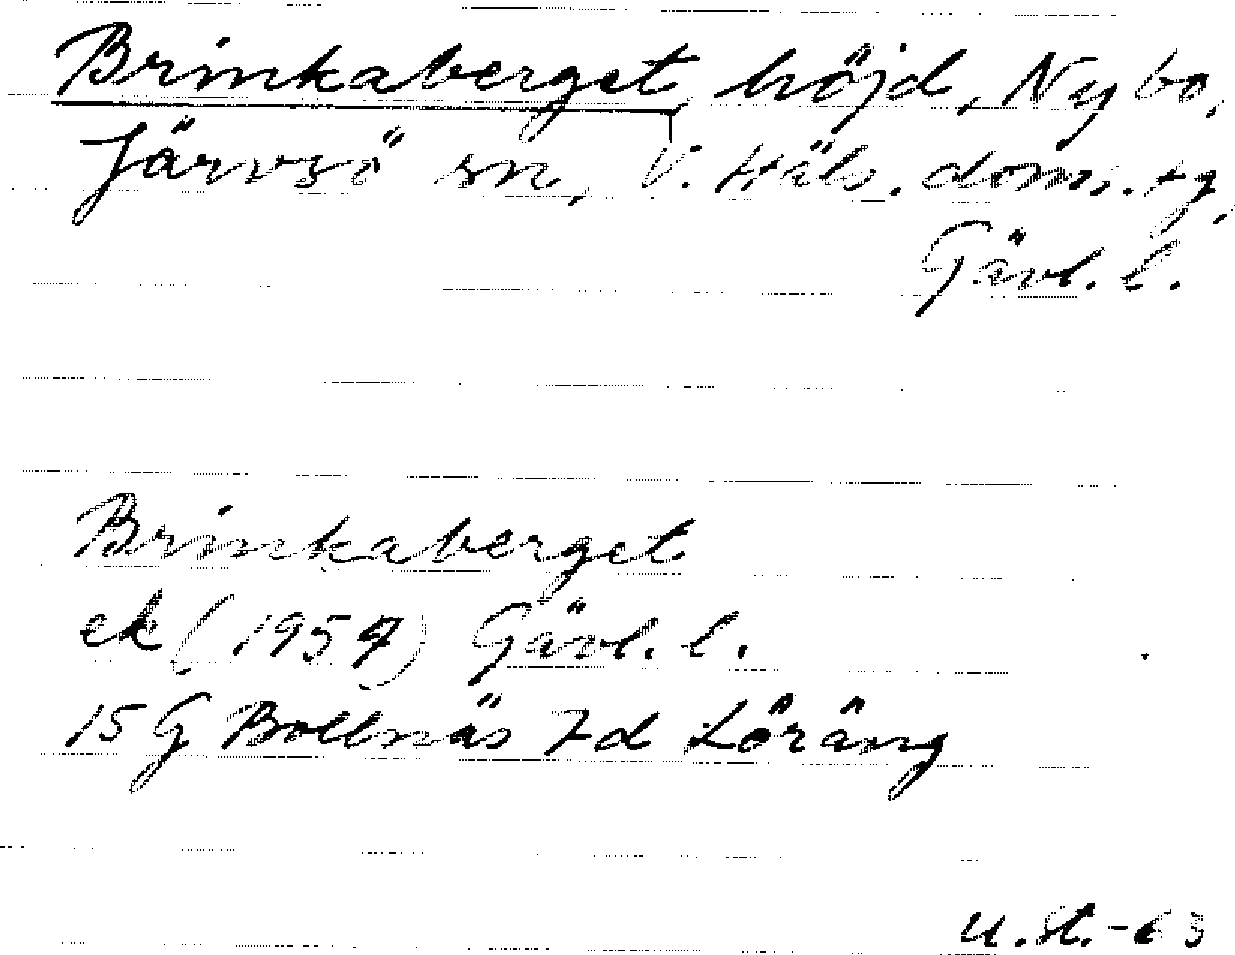 Brinkaberget, höjd, Nybo,
Järvsö sn, V. Häls. doms. tg,
Gävl. l.
Brinkaberget
ek (1957) Gävl. l.
15 G Bollnäs 7d Löräng
u. st. -63